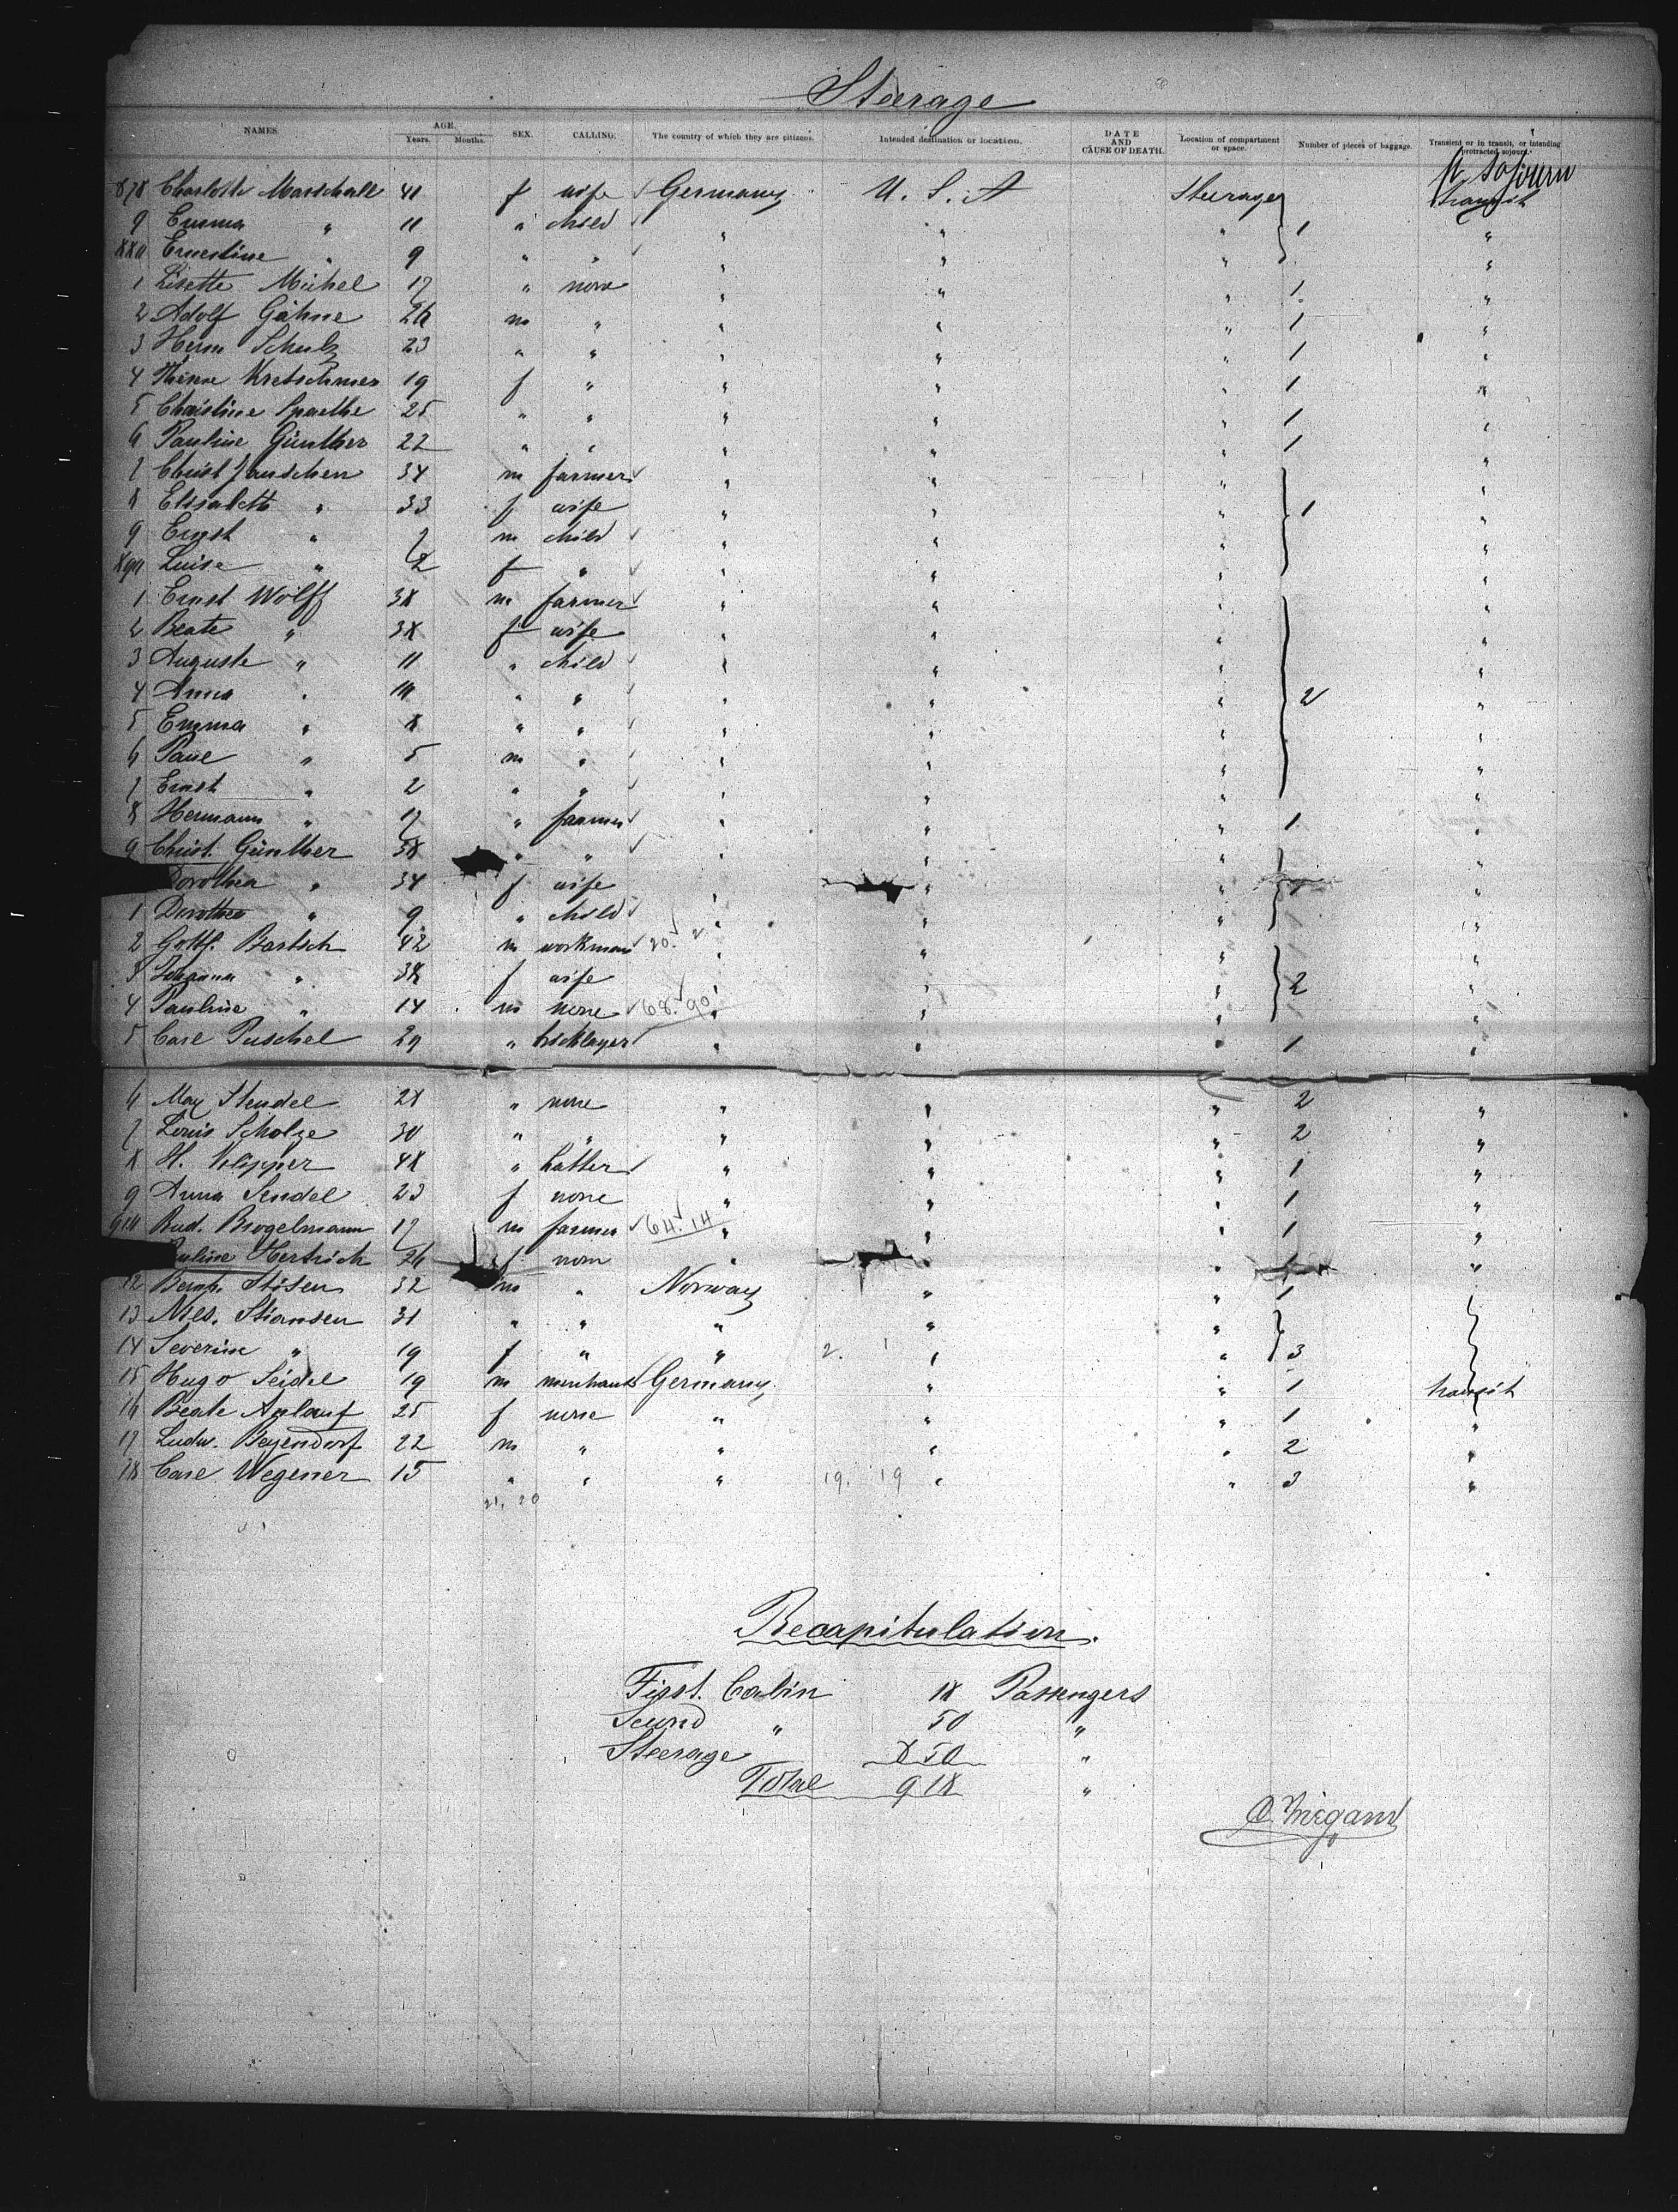 Steerage
NAMES. AGE. Years. Months. SEX. CALLING. The country of which they are citizens. Intended destination or location. DATE AND CAUSE OF DEATH. Location of compartment or space. Number of pieces of baggage. Transient or in transit, or intending protracted sojourn.
sojourn
878 Charlotte Marschall 41 f wife Germany U. S. A Steerage transit
9 Emma " 11 " child " " " 1 "
880 Ernestine " 9 " " " " " "
1 Lisette Michel 17 " none " " " 1 "
2 Adolf Gähne 26 m " " " " 1 "
3 Herm Schulz 23 " " " " " 1 "
4 Kretschmer 19 f " " " " 1 "
5 Christine Spaethe 25 " " " " " 1 "
6 Pauline Günther 22 " " " " " 1 "
7 Christ Janschen 34 m farmer " " " "
8 Elisabeth " 33 f wife " " " 1 "
9 Ernst " 7 m child " " " "
890 Luise " 2 f " " " " "
1 Ernst Wolff 38 m farmer " " " "
2 Beate " 38 f wife " " " "
3 Auguste " 11 " child " " " "
4 Anna " 10 " " " " " 2 "
5 Emma " 8 " " " " " "
6 Paul " 5 m " " " " "
7 Ernst " 2 " " " " " "
8 Hermann " 17 " farmer " " " 1 "
9 Christ. Günther 38 " " " " " "
Dorothea " 34 f wife " " " 1 "
1 Dorothea " 9 " child " " " "
2 Gottf. Bartsch 42 m workman 20. 2 " " " "
3 Johanna " 38 f wife " " " 2 "
4 Pauline " 14 m none 68. 90 " " " "
5 Carl Puschel 29 " " " " 1 "
6 Max Stendel 28 " none " " " 2 "
7 Louis Scholze 30 " " " " " 2 "
8 H. Klipper 48 " hatter " " " 1 "
9 Anna Sendel 23 f none " " " 1 "
910 Rud. Brogelmann 17 m farmer 64. 14 " " " 1 "
Pauline Hertrich 26 f none " " " 1 "
12 Stisen 32 m " Norway " " 1
13 Nils. Stiansen 31 " " " " "
14 Severine " 19 f " " 2. 1 " " 3
15 Hugo Seidel 19 m merchant Germany " " 1 transit
16 Beate Anlauf 25 f none " " " 1 "
17 Ludw. Beyendorf 22 m " " " " 2 "
18 Carl Wegener 15 " " " 19. 19 " " 3 "
21. 20
Recapitulation.
First. Cabin 18 Passengers
Second " 50 "
Steerage 850 "
Total 918 "